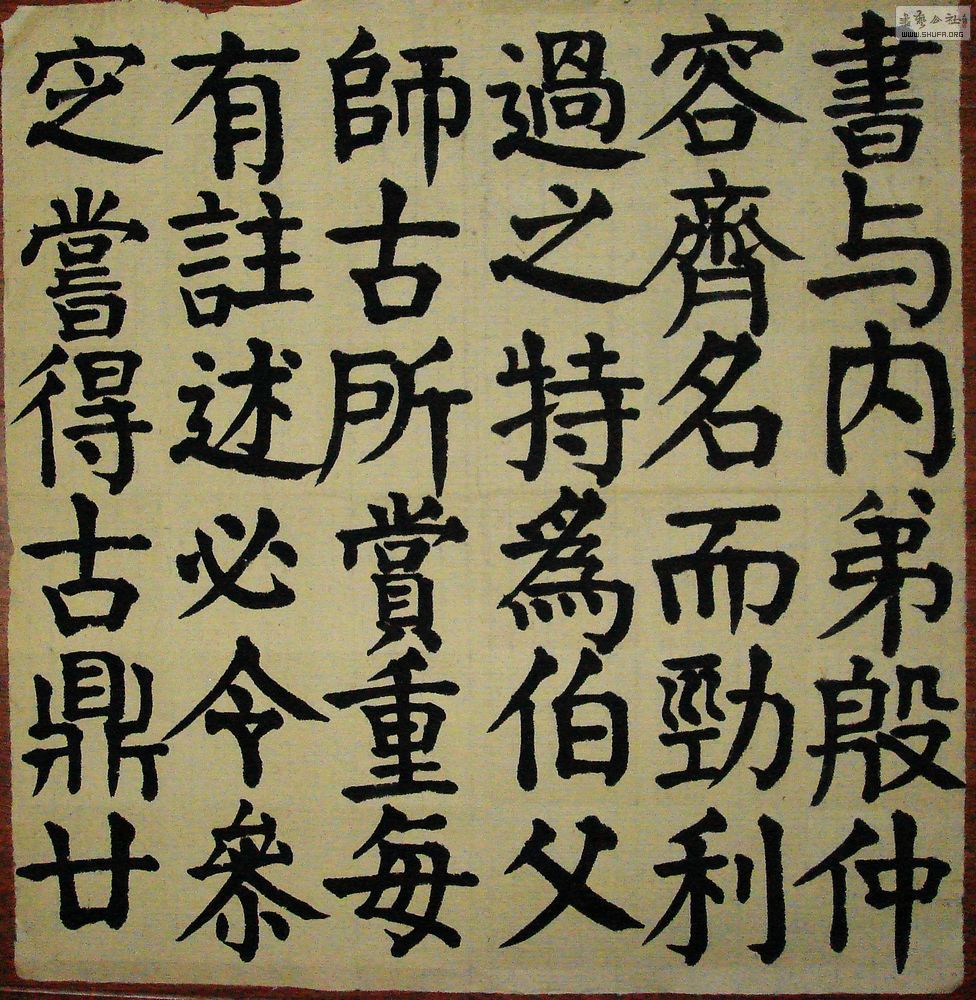 書与内弟殷仲
容齊名而勁利
過之特爲伯父
師古所賞重每
有註述必令參
定嘗得古鼎廿
書藝公社
WWW.SHUFA.ORG